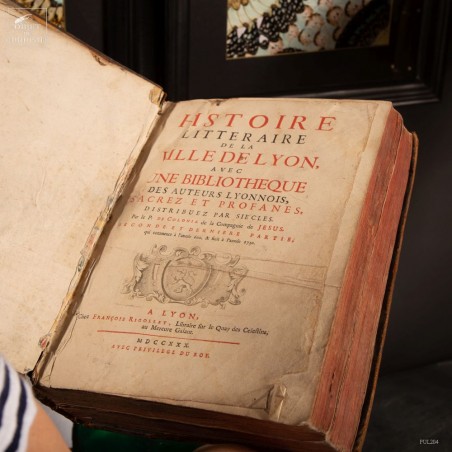 HISTOIRE
LITTERAIRE
DE LA
VILLE DE LYON,
AVEC
UNE BIBLIOTHEQUE
DES AUTEURS LYONNOIS,
SACREZ ET PROFANES,
DISTRIBUEZ PAR SIECLES.
Par le P. DE COLONIA de la Compagnie de JESUS.
SECONDE ET DERNIERE PARTIE;
qui commence à l'année & finit à l'année 1730.
A LYON,
Chez FRANÇOIS RIGOLLET, Libraire sur le Quay des Celestins,
au Mercure Galant.
MDCCXXX.
AVEC PRIVILEGE DU ROY.
FUL284